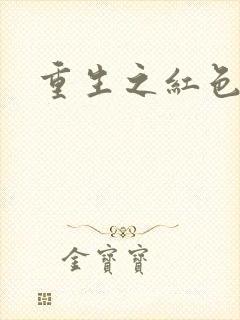 重生之紅色
金寶寶